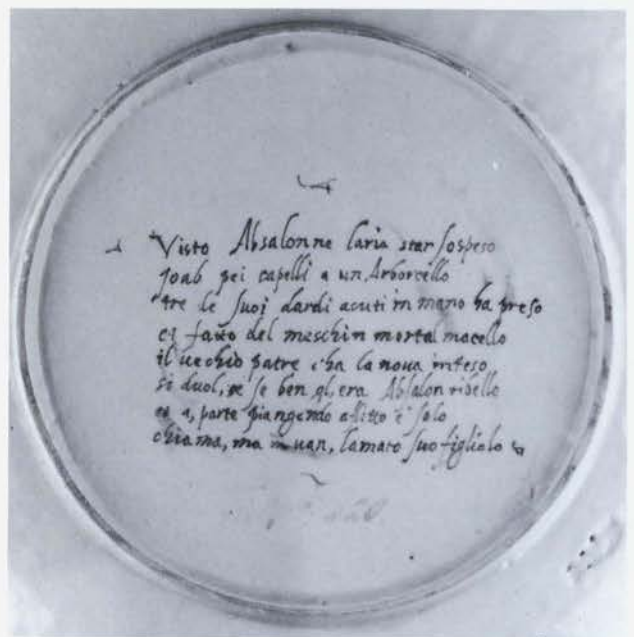 Visto Absalonne laria star sospeso
Joab pei capelli a un Arborcello
tre le suoj dardi acuti in mano ha preso
et fatto del meschin mortal macello
il vechio patre c'ha la nova inteso
si duol, se ben gl, era Absalon ribello
et a, parte piangendo afflitto e solo
chiama, ma in van, lamato suo figliolo